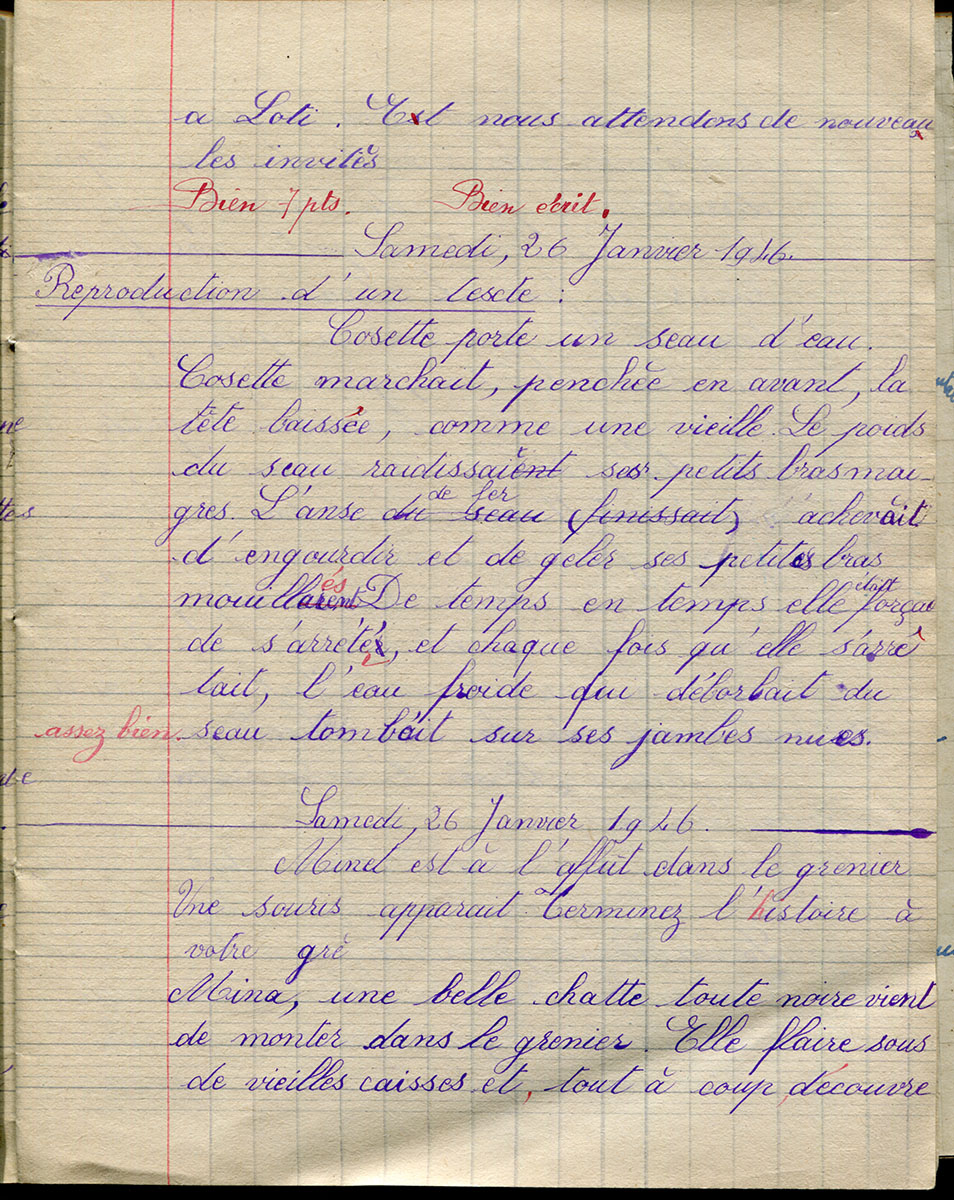 a Loti. Est nous attendons de nouveau
les invités
Bien 7 pts. Bien écrit.
Samedi, 26 Janvier 1946.
Reproduction d'un texte :
Cosette porte un seau d'eau.
Cosette marchait, penchée en avant, la
tête baissée, comme une vieille. Le poids
du seau raidissaient ses petits bras mai-
de fer
gres. L'anse du seau (finissait) achevait
d'engourdir et de geler ses petites bras
és
était
mouillaient De temps en temps elle forçait
de s'arrêter, et chaque fois qu'elle s'arrê
tait, l'eau froide qui débordait du
assez bien. seau tombait sur ses jambes nues.
Samedi, 26 Janvier 1946.
Minet est à l'affût dans le grenier
Une souris apparait. Terminez l'histoire à
votre gré
Mina, une belle chatte toute noire vient
de monter dans le grenier. Elle flaire sous
de vieilles caisses et, tout à coup, découvre